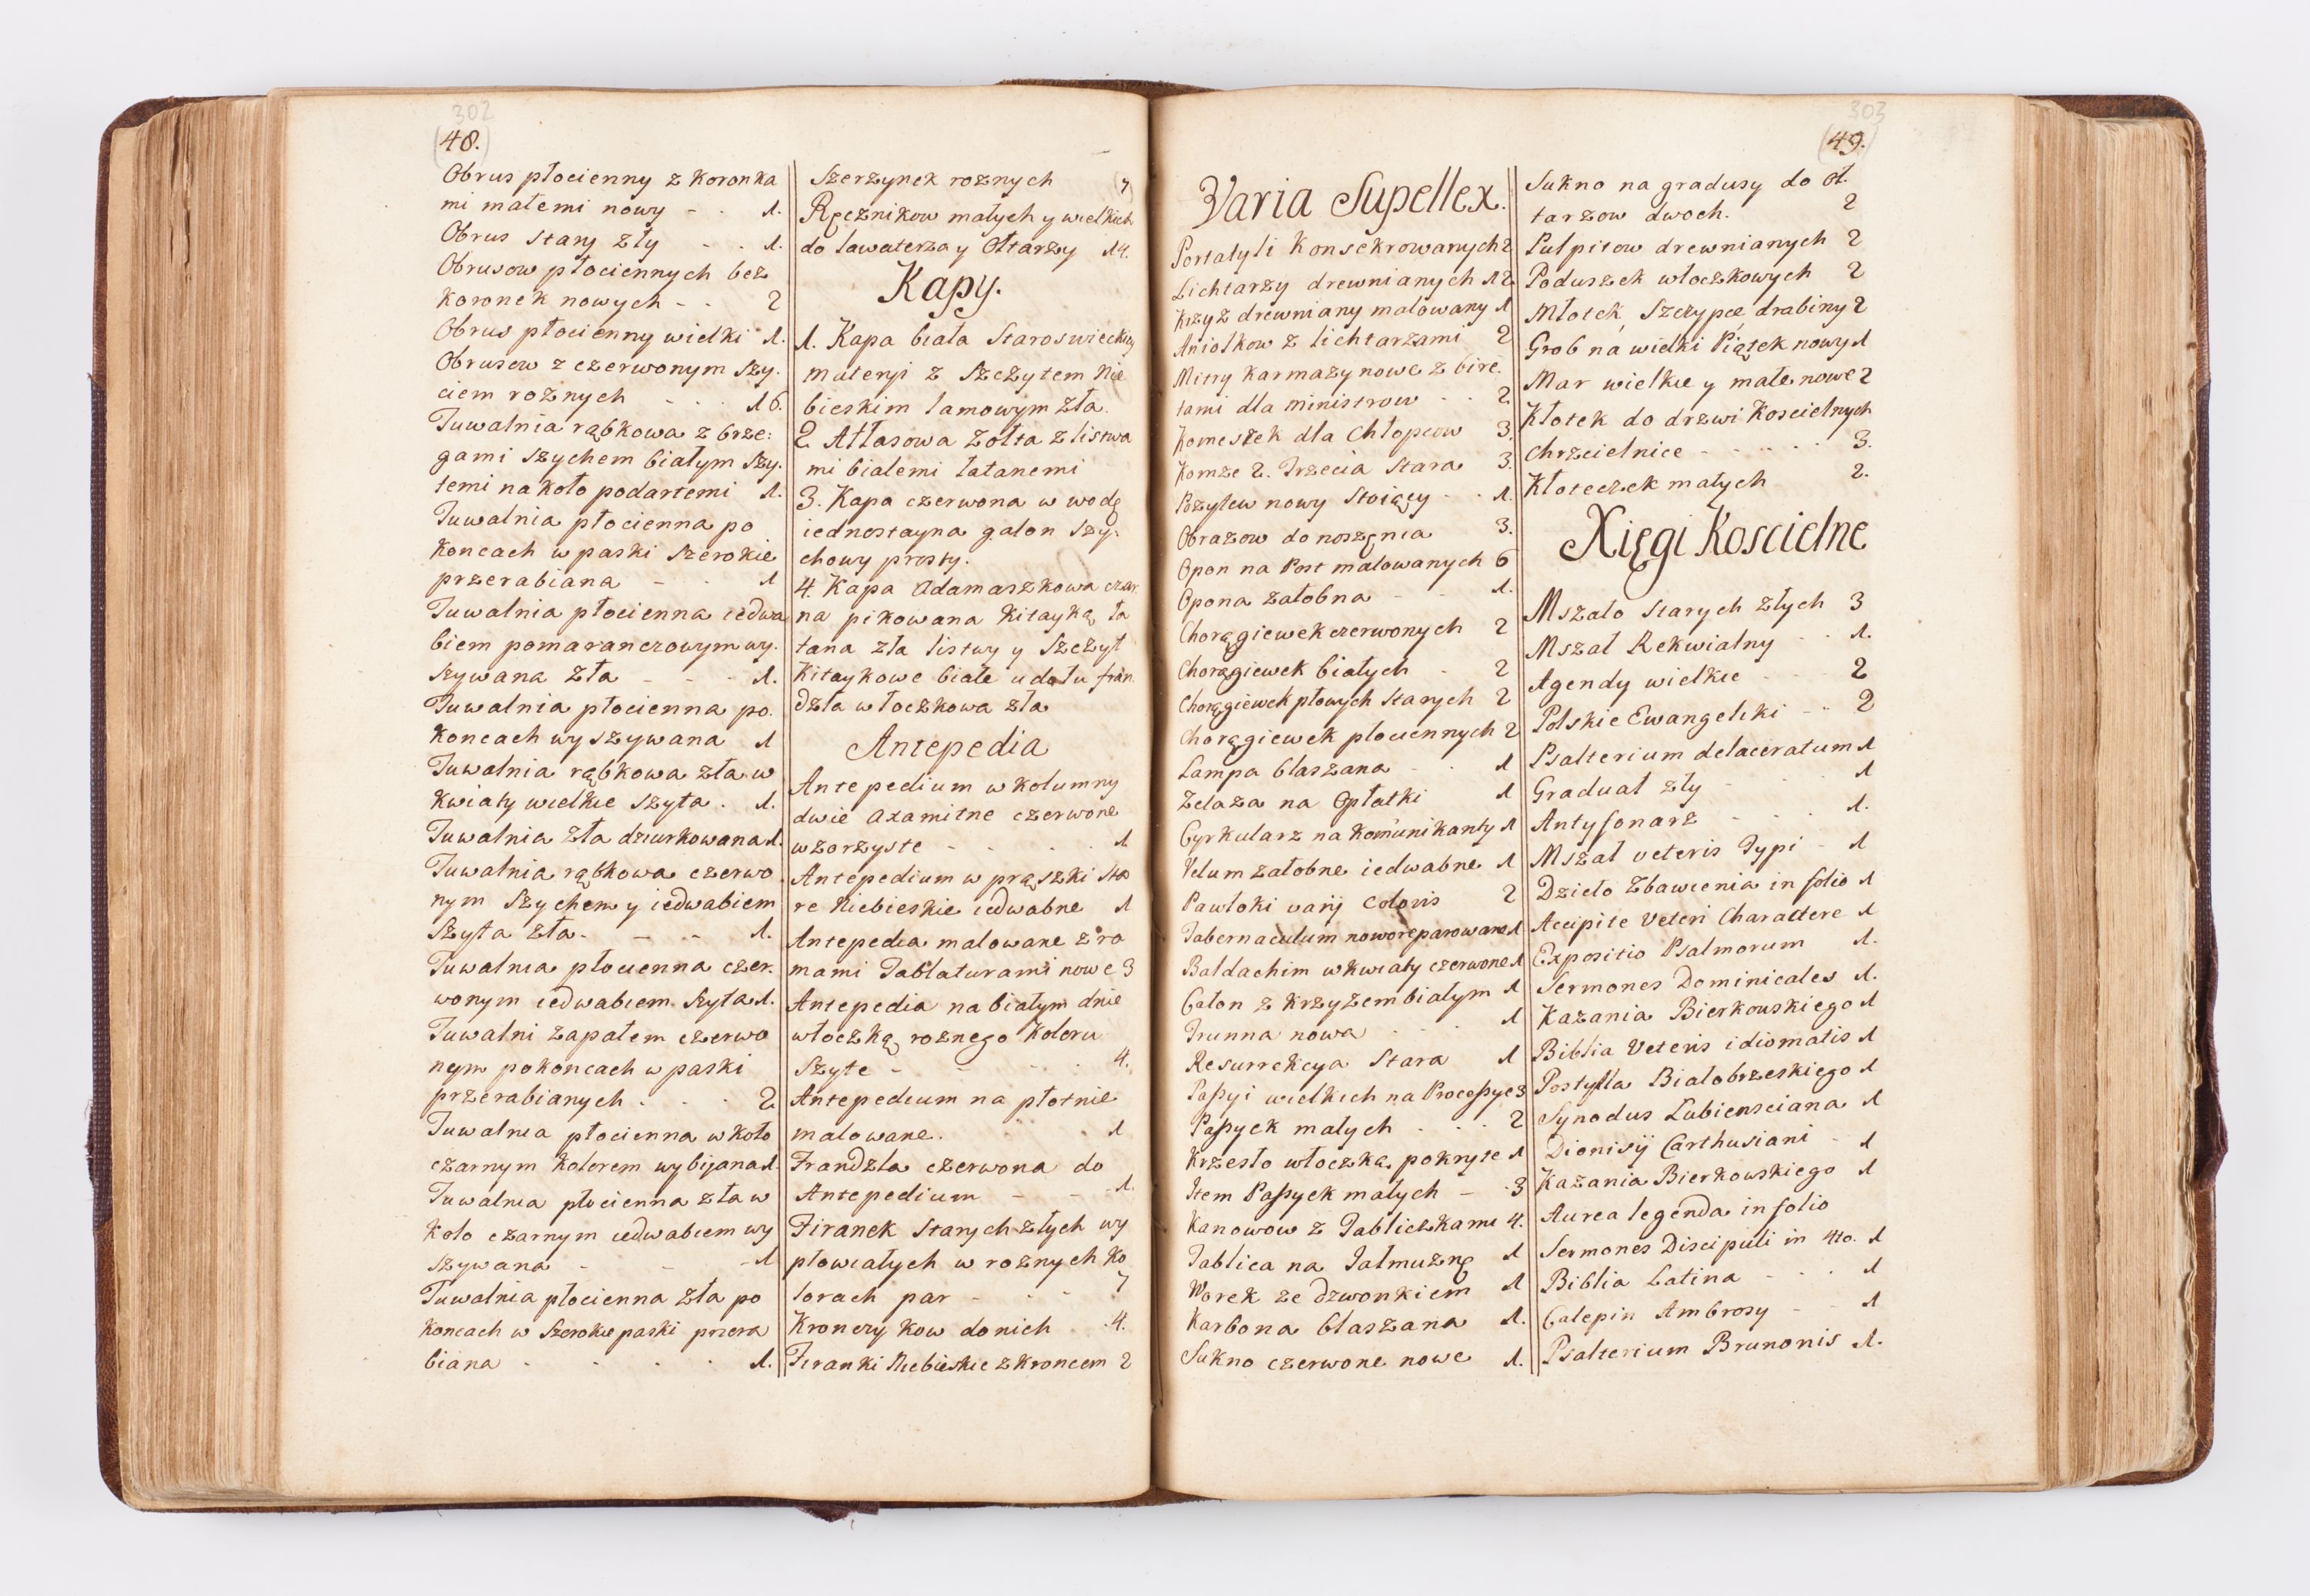 302
48.
Obrus płocienny z koronka
mi małemi nowy - . 1.
Obrus stary zły - . 1.
Obrusow płociennych bez
koronek nowych - . 2
Obrus płocienny wielki 1.
Obrusow z czerwonym szy.
ciem roznych - . . 16.
Tuwalnia rąbkowa z brze:
gami szychem białym szy.
temi na koło podartemi 1.
Tuwalnia płocienna po
koncach w paski szerokie
przerabiana - . 1
Tuwalnia płocienna iedwa
biem pomaranczowym wy.
szywana zła - - - 1.
Tuwalnia płocienna po.
koncach wyszywana 1
Tuwalnia rąbkowa zła w
kwiaty wielkie szyta . 1.
Tuwalnia zła dziurkowana 1.
Tuwalnia rąbkowa czerwo
nym szychem y iedwabiem
szyta zła - - - 1.
Tuwalnia płocienna czer.
wonym iedwabiem szyta 1.
Tuwalni zapałem czerwo
nym po koncach w paski
przerabianych . . . 2
Tuwalnia płocienna w koło
czarnym kolorem wybijana 1.
Tuwalnia płocienna zła w
koło czarnym iedwabiem wy
szywana - - - 1
Tuwalnia płocienna zła po
koncach w szerokie paski przera
biana . . . . 1.
Szerzynek roznych 7
Ręcznikow małych y wielkich
do lawaterza y Ołtarzy 14.
Kapy.
1. Kapa biała Staroswieckiey
materyi z szczytem nie
bieskim lamowym zła.
2 Atłasowa żołta z listwa
mi białemi łatanemi
3. Kapa czerwona w wodę
iednostayna galon szy.
chowy prosty.
4. Kapa Adamaszkowa czar
na pikowana kitayką ła
tana zła listwy y szczyt
kitaykowe białe u dołu fran
dzla włoczkowa zła
Antepedia
Antepedium w kolumny
dwie axamitne czerwone
wzorzyste - . . . 1
Antepedium w prąszki sta
re niebieskie iedwabne 1
Antepedia malowane z ra
mami Tablaturami nowe 3
Antepedia na białym dnie
włoczką roznego koloru
szyte - - . . 4.
Antepedium na płotnie
malowane. . . . 1
Frandzla czerwona do
Antepedium - - - 1.
Firanek starych złych wy
płowiałych w roznych ko
lorach par - . . - 7
Kronczykow do nich . . 4.
Firanki Niebieskie z kroncem 2
303
49.
Varia Supellex.
Portatyli konsekrowanych 2
Lichtarzy drewnianych 12
Krzyż drewniany malowany 1
Aniołkow z lichtarzami 2
Mitry karmazynowe z bire.
tami dla ministrow . . 2
Komeszek dla Chłopcow 3.
Komże 2. Trzecia stara 3.
Pozytew nowy stoiący . . 1.
Obrazow do noszęnia 3.
Opon na Post malowanych 6
Opona żałobna - - 1.
Chorągiewek czerwonych 2
Chorągiewek białych . 2
Chorągiewek płowych starych 2
Chorągiewek płociennych 2
Lampa blaszana - . 1
Zelaza na Opłatki 1
Cyrkularz na komunikanty 1
Velum żałobne iedwabne 1
Pawłoki varij coloris 2
Tabernaculum nowo reparowane 1
Baldachim w kwiaty czerwone 1
Całon z krzyzem białym 1
Trunna nowa . . . 1
Resurrekcya stara 1
Passyi wielkich na Processye 3
Passyek małych . . . 2
Krzesło włoczką pokryte 1
Item Passyek małych - . 3
Kanonow z Tabliczkami 4.
Tablica na Jałmużnę 1
Worek ze dzwonkiem 1
Karbona blaszana 1.
Sukno czerwone nowe 1.
Sukno na gradusy do oł.
tarzow dwoch. 2
Pulpitow drewnianych 2
Poduszek włoczkowych 2
Młotek, szczypce, drabiny 2
Grob na wielki Piątek nowy 1
Mar wielkie y małe nowe 2
Kłotek do drzwi Koscielnych
Chrzcielnice - . . . . 3.
Kłoteczek małych 2.
Xięgi Koscielne
Mszało starych złych 3
Mszał Rekwialny . . 1.
Agendy wielkie . . . 2
Polskie Ewangeliki - . . 2
Psalterium delaceratum 1
Graduał zły - . . 1
Antyfonarz - . . . 1.
Mszał veteris Typi - 1
Dzieło Zbawienia in folio 1
Accipite Veteri Charactere 1
Expositio Psalmorum 1.
Sermones Dominicales 1.
Kazania Bierkowskiego 1
Biblia Veteris idiomatis 1
Postylla Białobrzeskiego 1
Synodus Lubiensciana 1
Dionisij Carthusiani - 1
Kazania Bierkowskiego 1
Aurea legenda in folio
Sermones Discipuli in 4to. 1
Biblia Latina - . . 1
Calepin Ambrosy - - 1
Psalterium Brunonis 1.